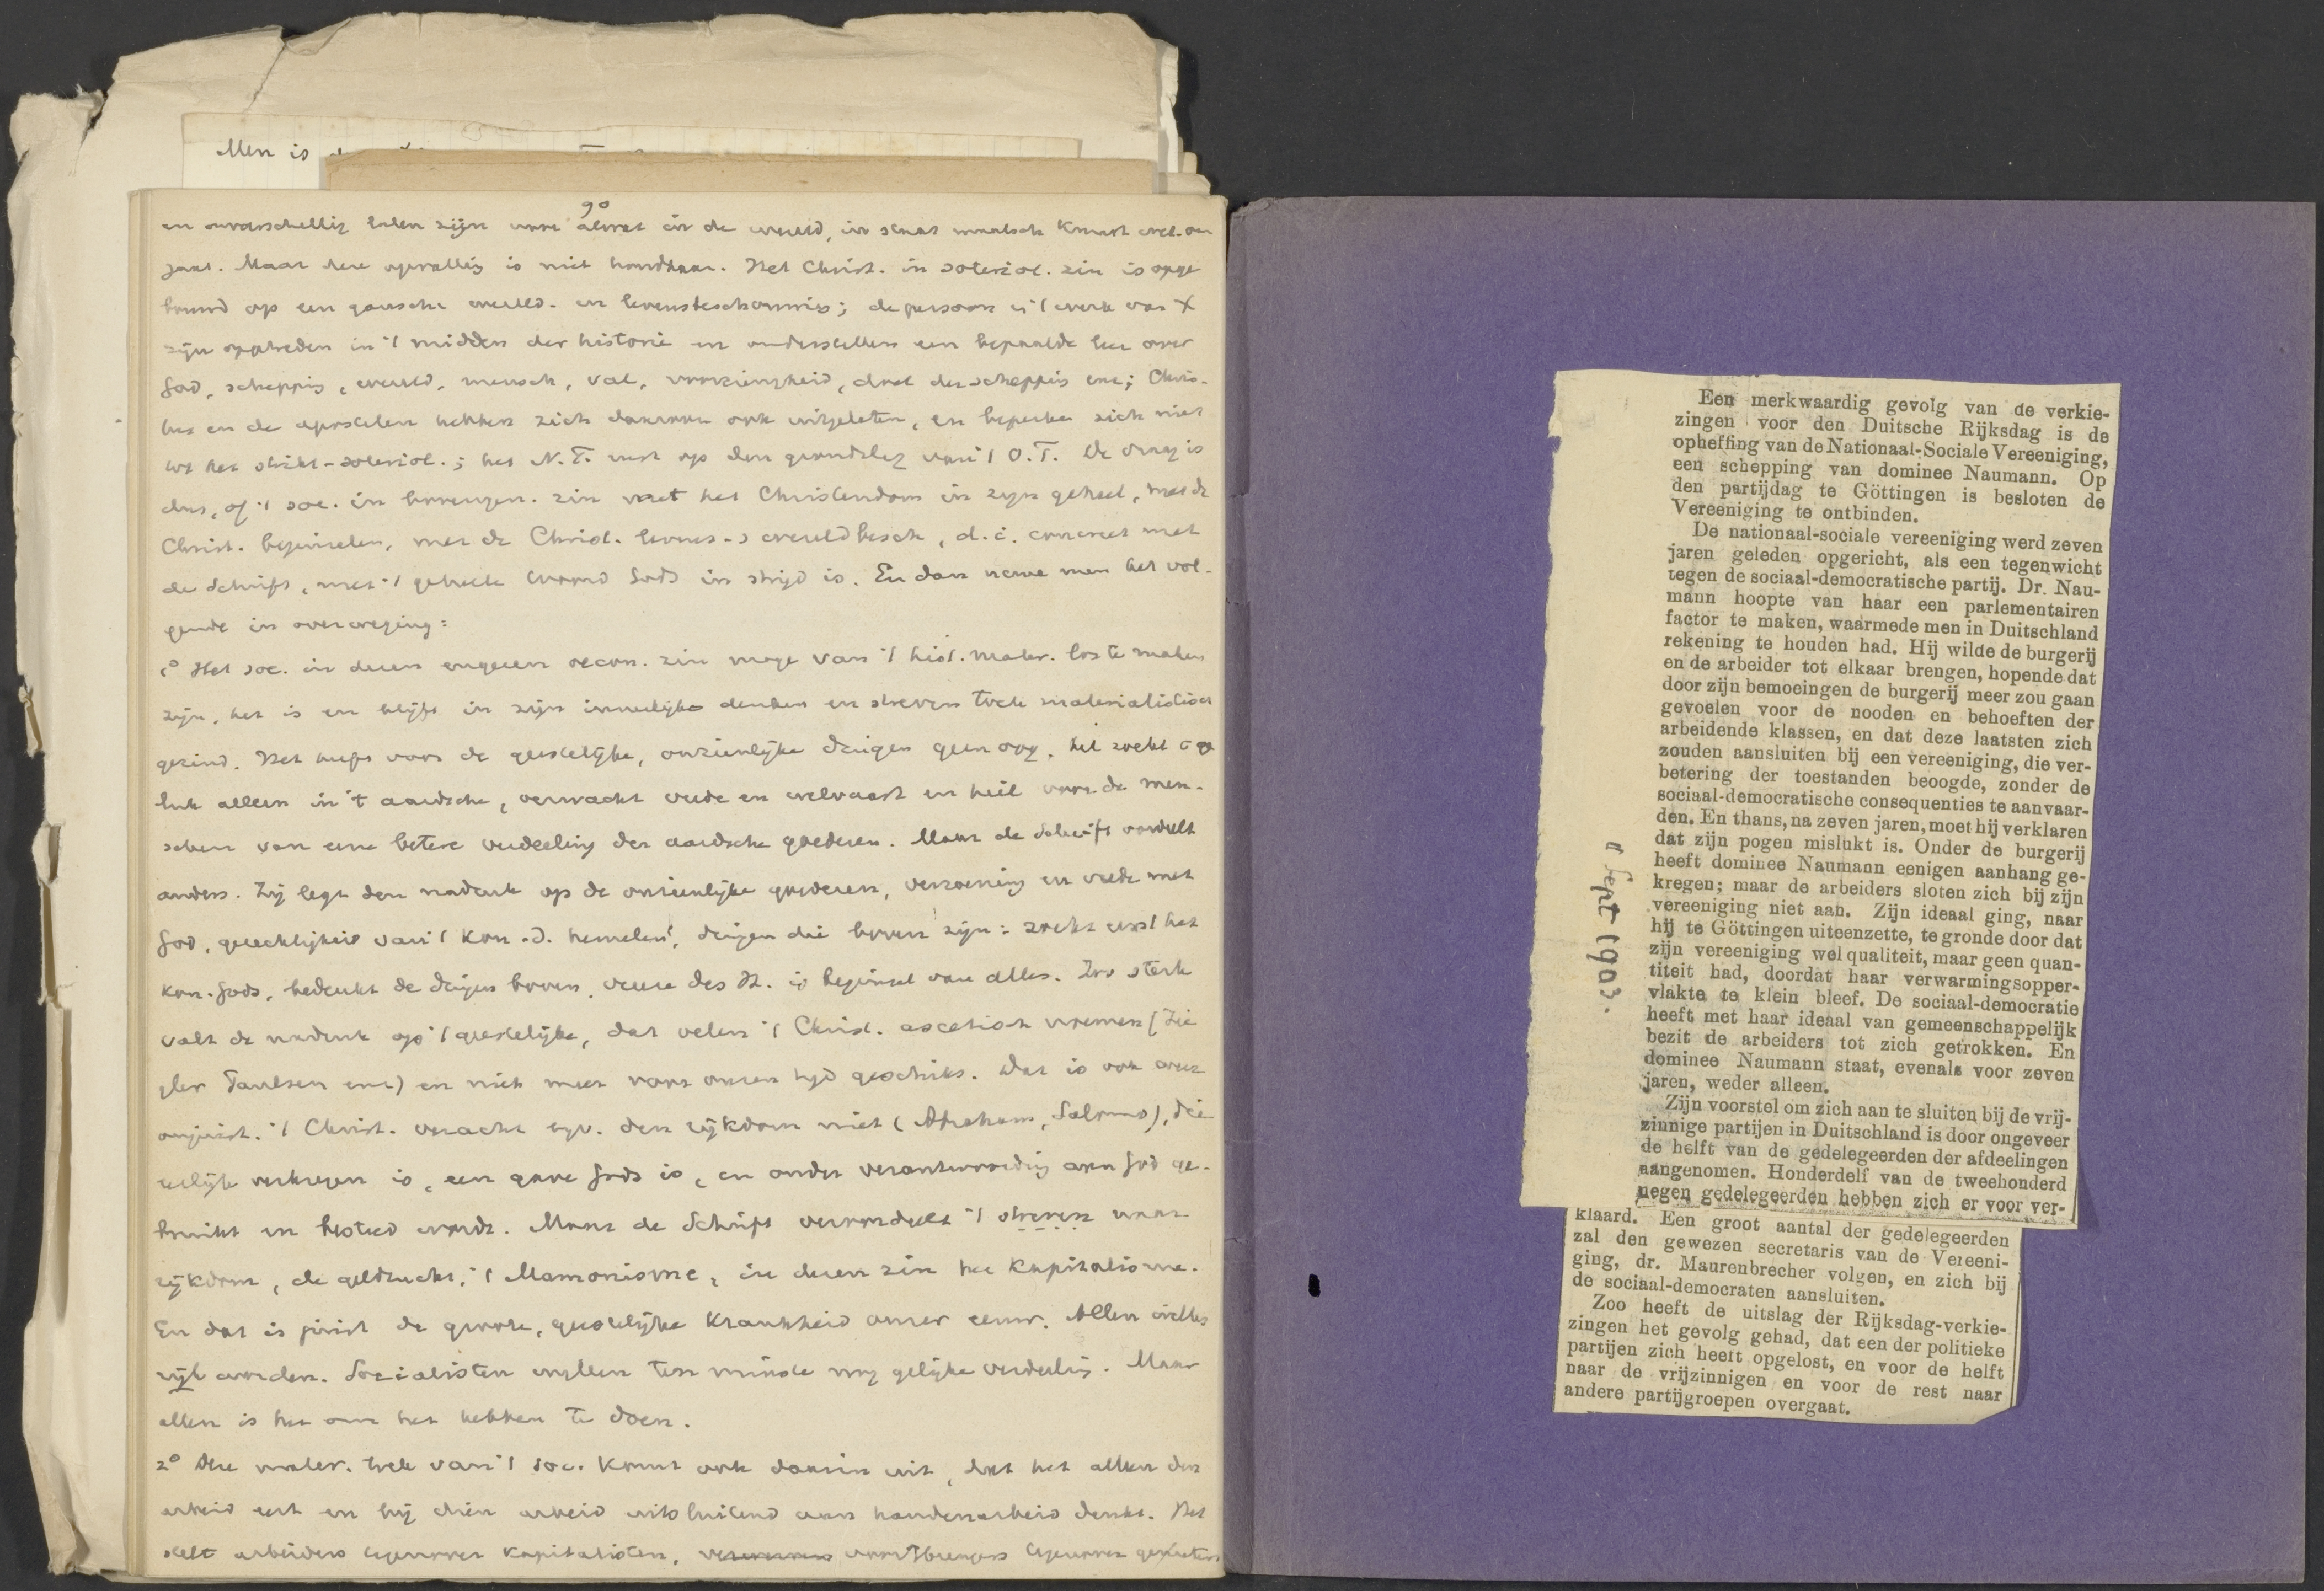 Men is
90
en onverschillig laten zijn voor alwat in de wereld, in staat maatsch. Kunst wet. om
gaat. Maar deze opvatting is niet houdbaar. Het Christ. in soteriol. zin is opge
bouwd op een gansche wereld- en levensbeschouwing; de persoon en 't werk van X
zijn optreden in 't midden der historie en onderstellen een bepaalde leer over
God, schepping, wereld, mensch, val, voorzienigheid, doel der schepping enz; Chris-
tus en de apostelen hebben zich daarover ook uitgelaten, en beperken zich niet
tot het strikt-soteriol.; het N.T. rust op den grondslag van 't O.T. De vraag is
dus, of 't soc. in bovengen. zin met het Christendom in zijn geheel, met de
Christ. beginselen, met de Christ. levens- wereldbesch, d.i. concreet met
de Schrift, met 't geheele woord Gods in strijd is. En dan neme men het vol-
gende in overweging:
1° Het soc. in dezen engeren oecon. zin moge van 't hist. mater. los te maken
zijn, het is en blijft in zijn innerlijke denken en streven toch materialistisch
gezind. Het heeft voor de geestelijke, onzienlijke dingen geen oog. het zoekt 't ge
luk alleen in 't aardsche, verwacht vrede en welvaart en heil voor de men-
schen van eene betere verdeeling der aardsche goederen. Maar de Schrift oordeelt
anders. Zij legt den nadruk op de onzienlijke goederen, verzoening en vrede met
God, gerechtigheid van 't Kon. d. hemelen, dingen die boven zijn: zoekt eerst het
Kon. Gods, bedenkt de dingen boven, vreeze des H. is beginsel van alles. Zoo sterk
valt de nadruk op 't geestelijke, dat velen 't Christ. ascetisch noemen (Zie
gler Paulsen enz) en niet meer voor onzen tijd geschikt. Dat is ook weer
onjuist. 't Christ. veracht bijv. den rijkdom niet (Abraham, Salomo), die
eerlijk verkregen is, een gave Gods is, en onder verantwoording aan God ge-
bruikt en besteed wordt. Maar de Schrift veroordeelt 't streven naar
rijkdom, de geldzucht, 't Mamonisme, in dezen zin het Kapitalisme.
En dat is juist de groote, geestelijke Krankheid onzer eeuw. Allen willen
rijk worden. Socialisten willen ten minste nog gelijke verdeeling. Maar
allen is het om het hebben te doen.
2° Die mater. trek van 't soc. komt ook daarin uit, dat het alleen den
arbeid eert en bij dien arbeid uitsluitend aan handenarbeid denkt. Het
stelt arbeiders tegenover Kapitalisten, voortbrengers tegenover genieters
Een merkwaardig gevolg van de verkie-
zingen voor den Duitsche Rijksdag is de
opheffing van de Nationaal-Sociale Vereeniging,
een schepping van dominee Naumann. Op
den partijdag te Göttingen is besloten de
Vereeniging te ontbinden.
De nationaal-sociale vereeniging werd zeven
jaren geleden opgericht, als een tegenwicht
tegen de sociaal-democratische partij. Dr. Nau-
mann hoopte van haar een parlementairen
factor te maken, waarmede men in Duitschland
rekening te houden had. Hij wilde de burgerij
en de arbeider tot elkaar brengen, hopende dat
door zijn bemoeingen de burgerij meer zou gaan
gevoelen voor de nooden en behoeften der
arbeidende klassen, en dat deze laatsten zich
zouden aansluiten bij een vereeniging, die ver-
betering der toestanden beoogde, zonder de
sociaal-democratische consequenties te aanvaar-
den. En thans, na zeven jaren, moet hij verklaren
dat zijn pogen mislukt is. Onder de burgerij
heeft dominee Naumann eenigen aanhang ge-
kregen; maar de arbeiders sloten zich bij zijn
vereeniging niet aan. Zijn ideaal ging, naar
hij te Göttingen uiteenzette, te gronde door dat
zijn vereeniging wel qualiteit, maar geen quan-
titeit had, doordat haar verwarmingsopper-
vlakte te klein bleef. De sociaal-democratie
heeft met haar ideaal van gemeenschappelijk
bezit de arbeiders tot zich getrokken. En
dominee Naumann staat, evenals voor zeven
jaren, weder alleen.
Zijn voorstel om zich aan te sluiten bij de vrij-
zinnige partijen in Duitschland is door ongeveer
de helft van de gedelegeerden der afdeelingen
aangenomen. Honderdelf van de tweehonderd
negen gedelegeerden hebben zich er voor ver-
klaard. Een groot aantal der gedelegeerden
zal den gewezen secretaris van de Vereeni-
ging, dr. Maurenbrecher volgen, en zich bij
de sociaal-democraten aansluiten.
Zoo heeft de uitslag der Rijksdag-verkie-
zingen het gevolg gehad, dat een der politieke
partijen zich heeft opgelost, en voor de helft
naar de vrijzinnigen en voor de rest naar
andere partijgroepen overgaat.
Sept 1903.